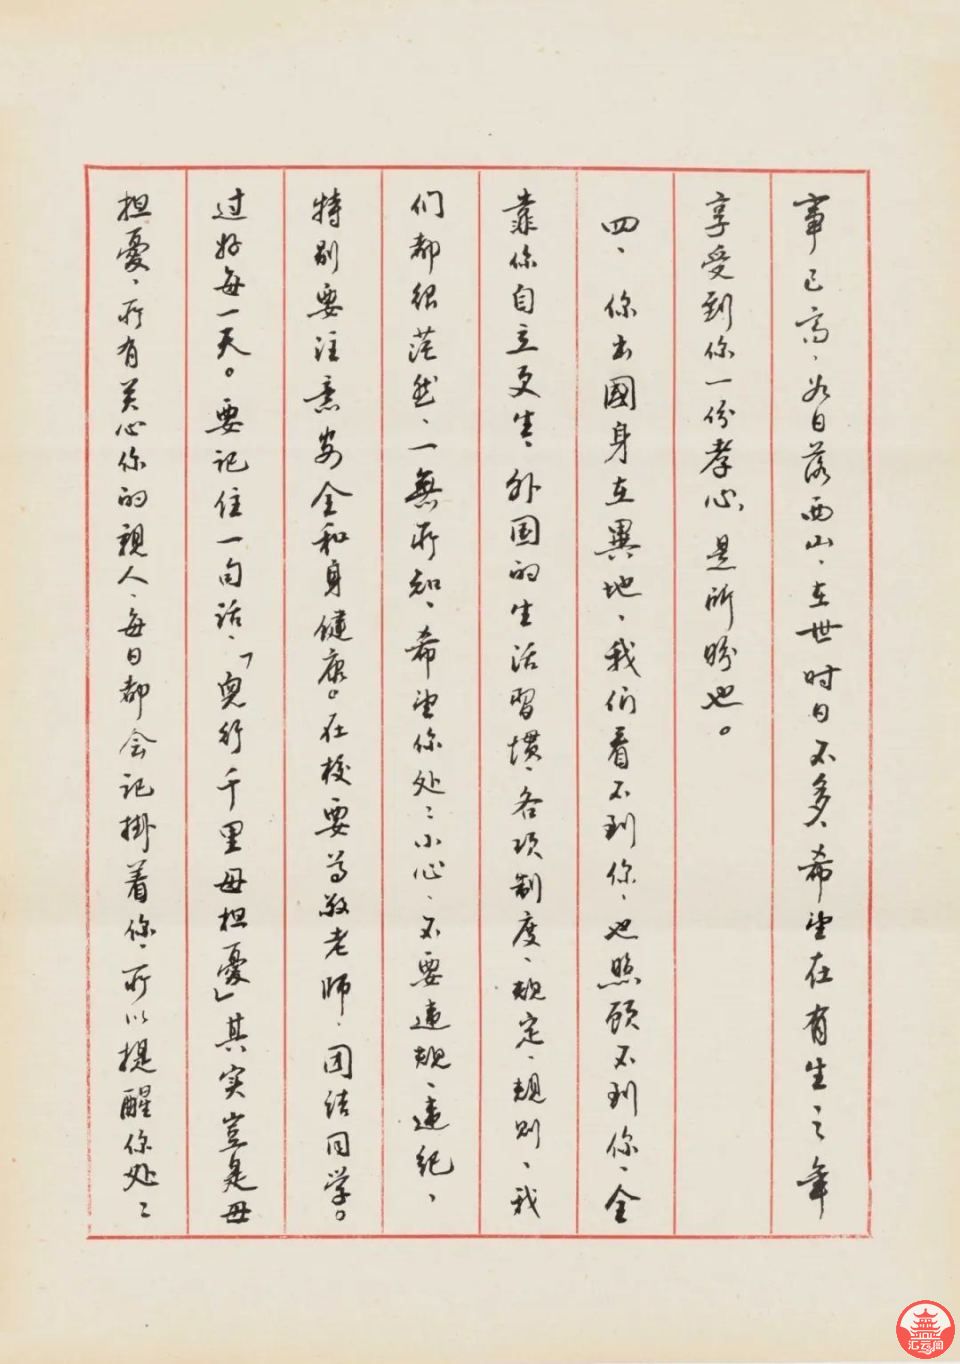 事已高、如日落西山、在世时日不多、希望在有生之年
享受到你一份孝心、是所盼也。
四、你出國身在異地、我们看不到你、也照顾不到你、全
靠你自立更生、外国的生活習慣、各项制度、规定、规则、我
们都很茫然、一無所知、希望你处：小心、不要违规、违纪、
特别要注意安全和身健康。在校要尊敬老师、团结同学。
过好每一天。要记住一句话、「兒行千里母担憂」其实豈是母
担憂、所有关心你的親人、每日都会记掛着你、所以提醒你处：
汇云阁